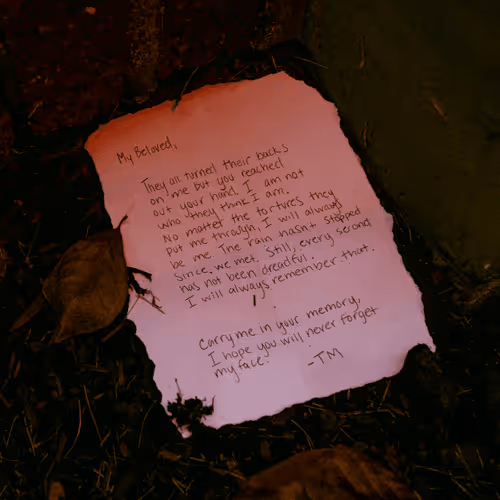 My Beloved,
They all turned their backs
on me but you reached
out your hand. I am not
who they think I am.
No matter the tortures they
put me through, I will always
be me. The rain hasnt stopped
since we met. Still, every second
has not been dreadful.
I will always remember that.
Carry me in your memory,
I hope you will never forget
my face. -TM